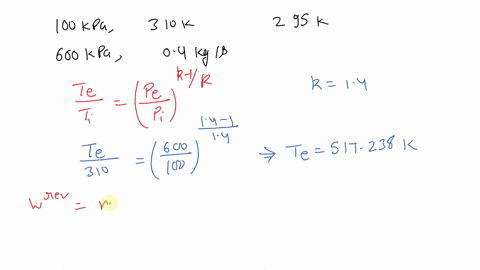 100 kPa, 310 K 295 K
600 kPa, 0.4 kg/s
Te/Ti = (Pe/Pi)^k-1/k k = 1.4
Te/310 = (600/100)^1.4-1/1.4 ⇒ Te = 517.238 K
W^rev = m